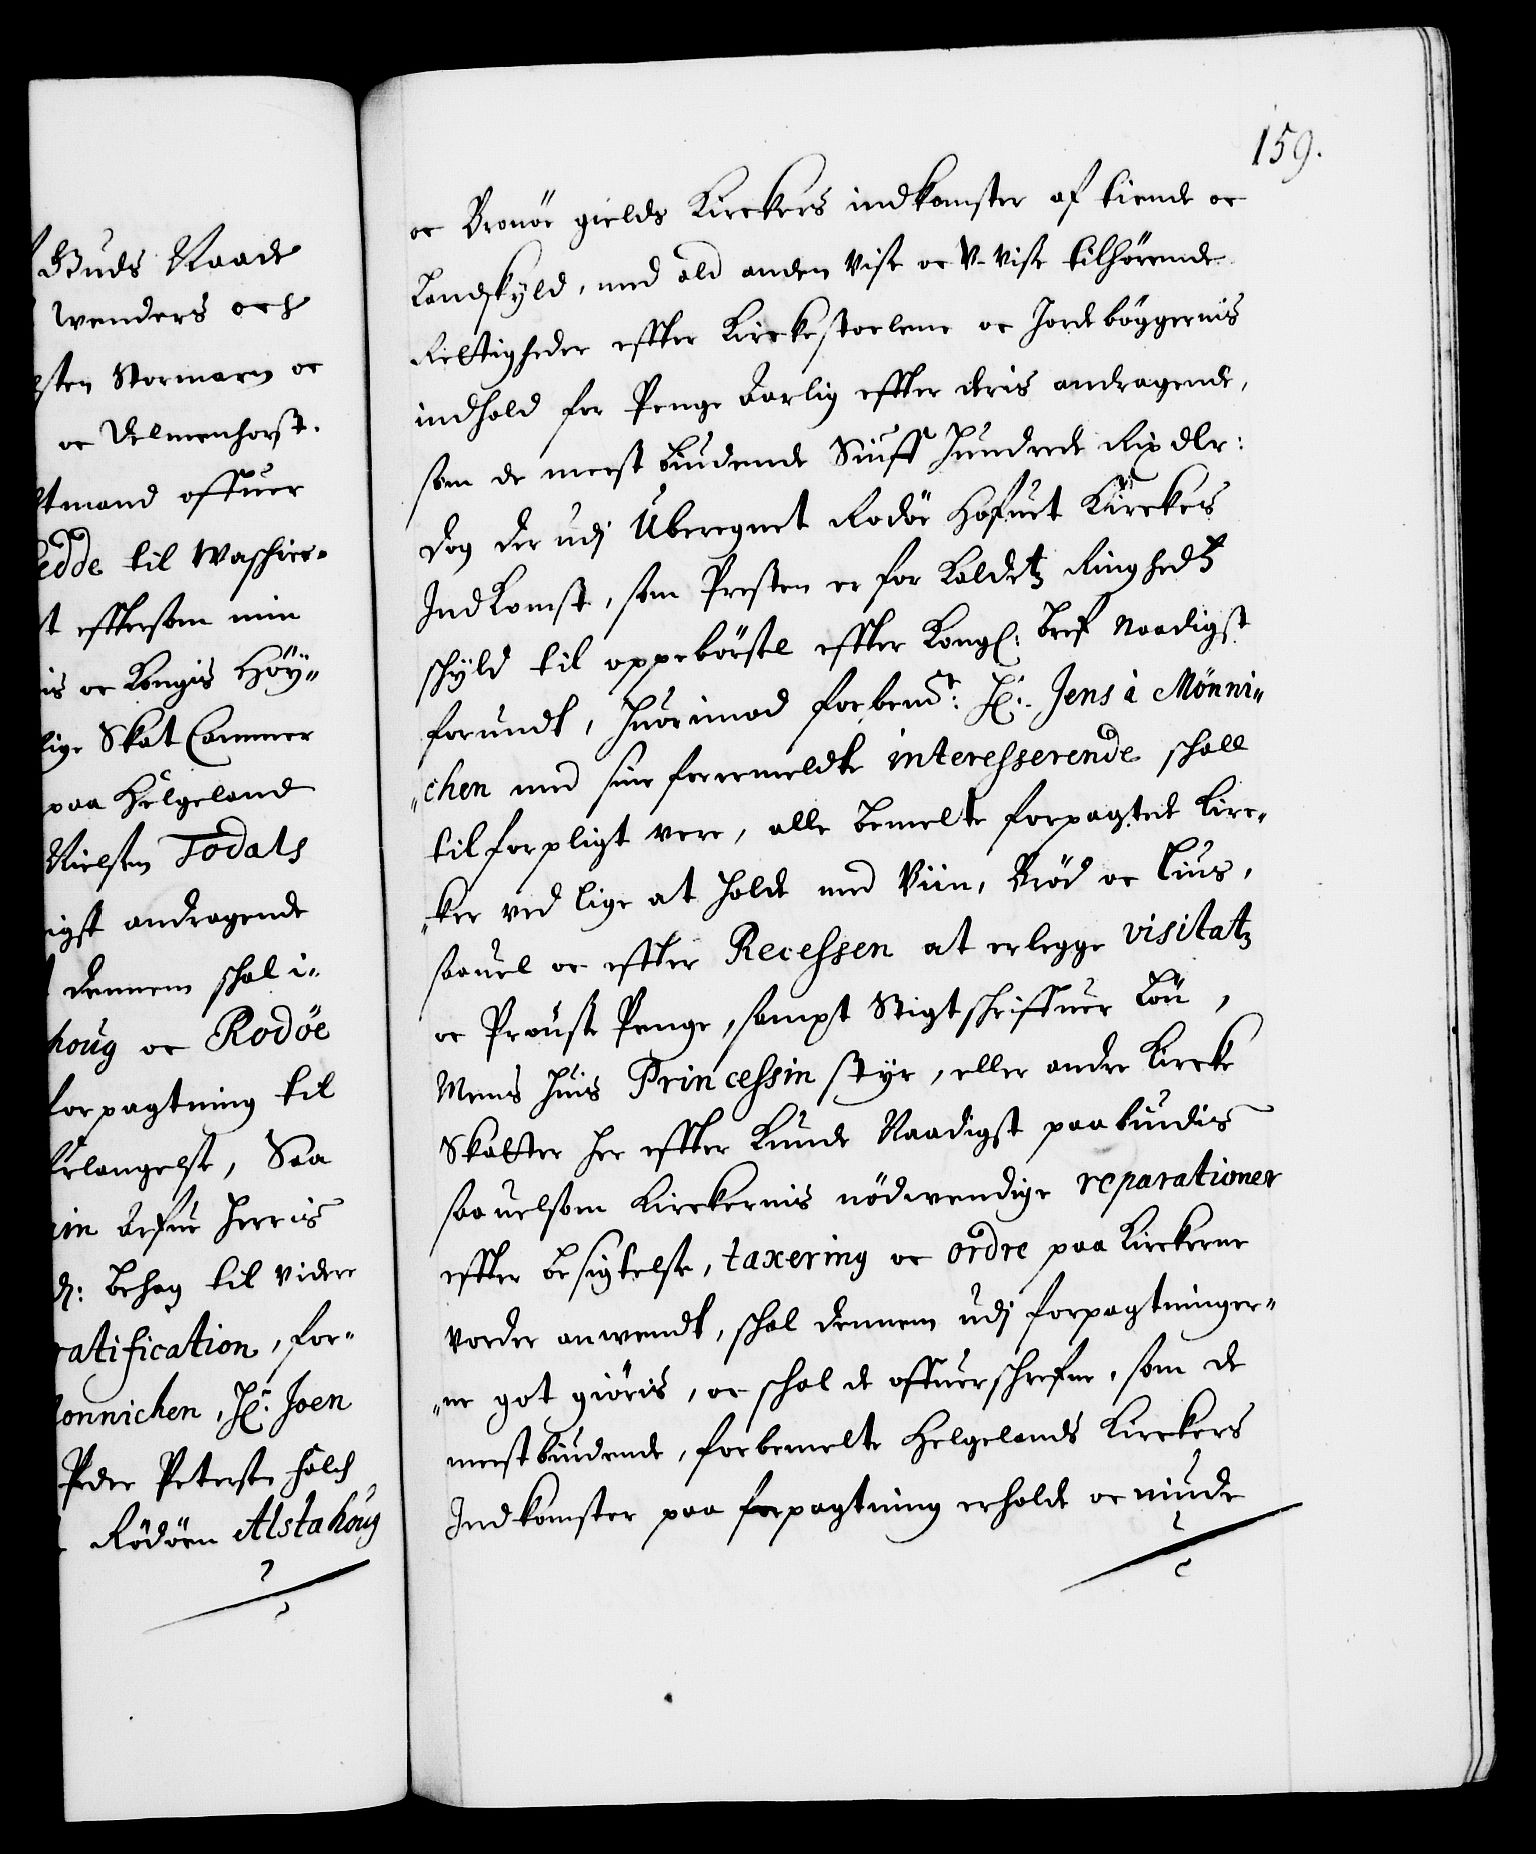 Guds Naade
Wenders och
sten Stormarn oc
oc Delmenhorst.
tmand offuer
edde til Waschier-
t efftersom min
is oc Kongis Höy-
lige Skat Cammer
paa Helgeland
Nielsen Todals
igst andragende
dennem schal i-
houg oc Rodöe
forpagtning til
erlangelse, Saa
in Arfue Herris
d: behag til videre
ratification, for-
onnichen, Hr: Joen
Peder Peterssen Falch
Rödöen Alstahoug
159.
oc Brönöe gields Kirckers indkomster af tiende oc
Landskyld, med ald anden Vise oc V-Vise tilhörende
Rettigheder effter Kirckestoelene oc Jordeböggernis
indhold for Penge Aarlig effter deris andragende,
som de meest biudende Siuff Hundrede Rix dlr:
dog der udj Uberegnet Rodöe Hofuet Kirckes
Indkomst, som Presten er for Kaldetz Ringhedtz
schyld til oppebörsel effter Kongl: bref Naadigst
forundt, huorimod forbemte: Hr: Jens à Mönni-
chen med sine forermeldte interesserende schall
tilforpligt vere, alle bemelte forpagtede Kirc-
ker ved lige at holde med Viin, Bröd oc Lius,
saauel oc effter Recessen at erlegge visitatz
oc Prouste Penge, sampt Stigtschriffuer Lön,
Mens huis Princessin styr, eller andre Kircke
Skatter her effter Kunde Naadigst paabiudis
saauelsom Kirckernis nödwendige reparationer
effter besigtelse, taxering oc ordre paa Kirckerne
vorder anwendt, schal dennem udj forpagtninger-
ne got giöris, oc schal de offuerschrefne, som de
meestbiudende, forbemelte Helgelands Kirckers
Indkomster paa forpagtning erholde oc niude